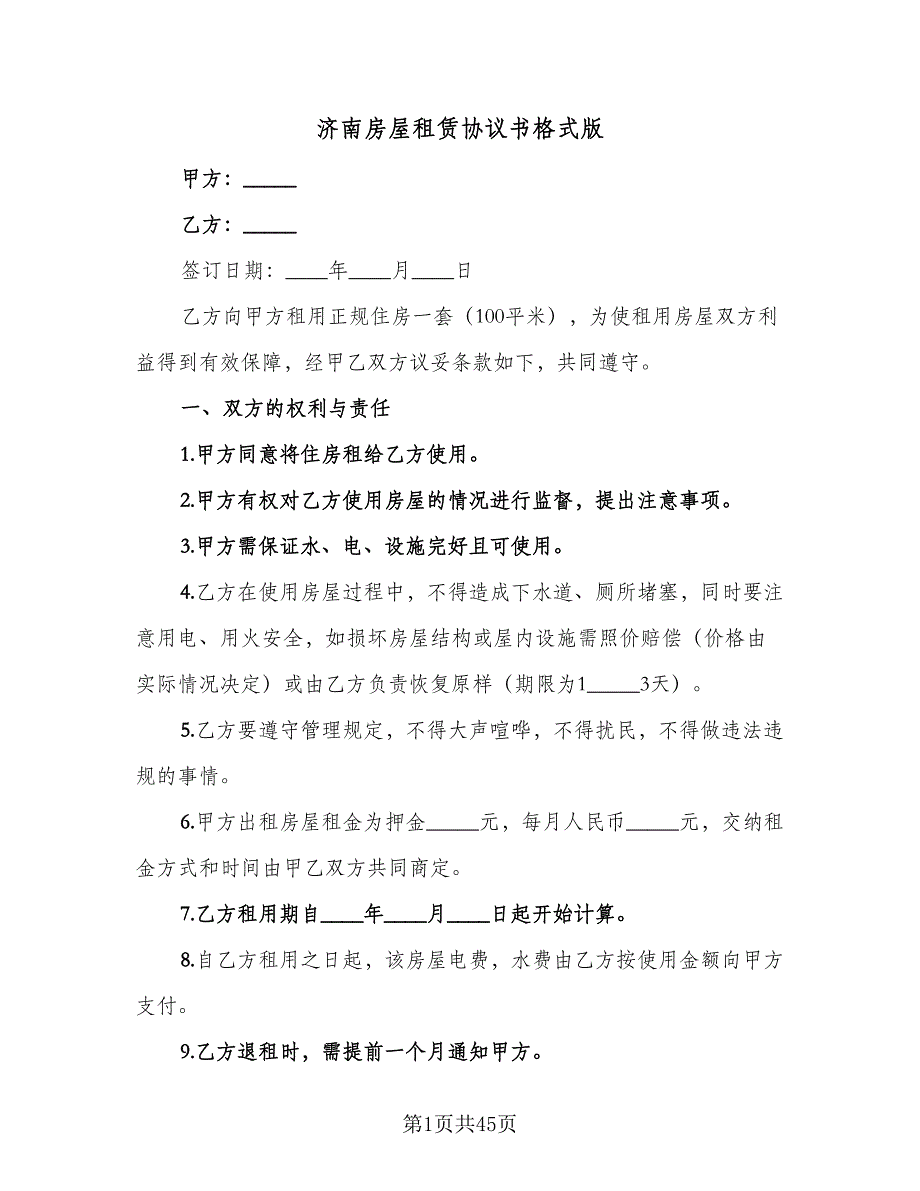 济南房屋租赁协议书格式版
甲方：_____
乙方：_____
签订日期：____年____月____日
乙方向甲方租用正规住房一套（100平米），为使租用房屋双方利
益得到有效保障，经甲乙双方议妥条款如下，共同遵守。
一、双方的权利与责任
1.甲方同意将住房租给乙方使用。
2.甲方有权对乙方使用房屋的情况进行监督，提出注意事项。
3.甲方需保证水、电、设施完好且可使用。
4.乙方在使用房屋过程中，不得造成下水道、厕所堵塞，同时要注
意用电、用火安全，如损坏房屋结构或屋内设施需照价赔偿（价格由
实际情况决定）或由乙方负责恢复原样（期限为1_____3天）。
5.乙方要遵守管理规定，不得大声喧哗，不得扰民，不得做违法违
规的事情。
6.甲方出租房屋租金为押金_____元，每月人民币_____元，交纳租
金方式和时间由甲乙双方共同商定。
7.乙方租用期自____年____月____日起开始计算。
8.自乙方租用之日起，该房屋电费，水费由乙方按使用金额向甲方
支付。
9.乙方退租时，需提前一个月通知甲方。
第1页共45页